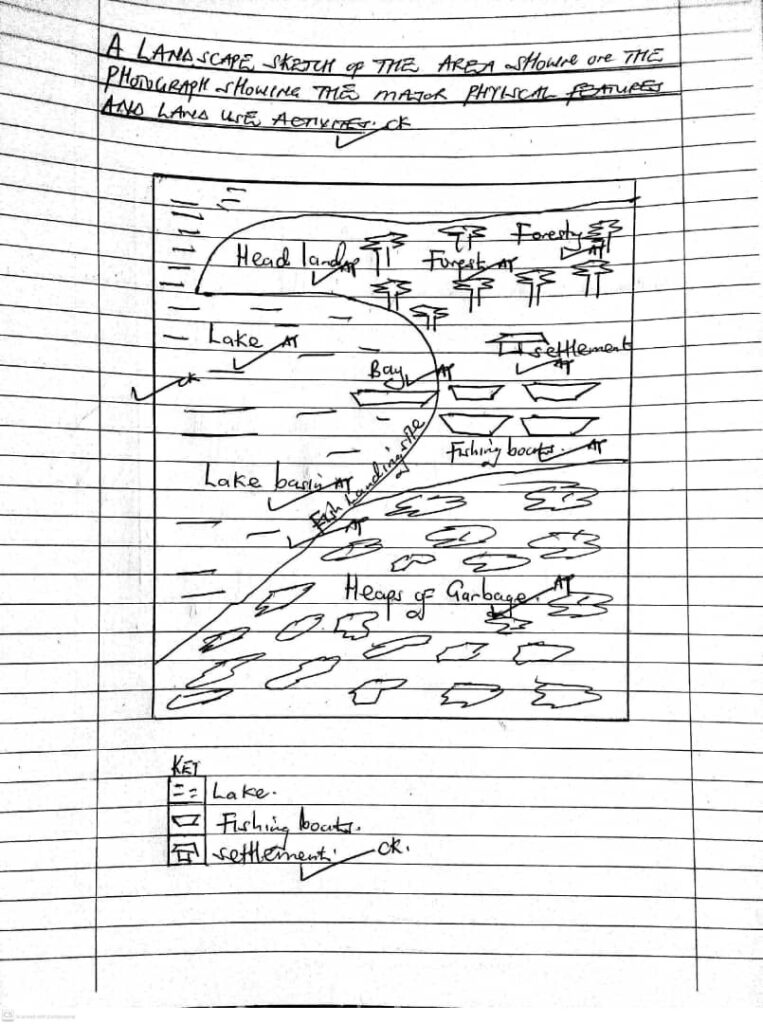 A LANDSCAPE SKETCH OF THE AREA SHOWN ONE THE
PHOTOGRAPH SHOWING THE MAJOR PHYSICAL FEATURES
AND LAND USE ACTIVITIES. CK
Head land AT
Forest AT
Forest AT
Lake AT
settlement AT
CK
Bay AT
Fishing boats. AT
Lake basin AT
Fish Landing site AT
Heaps of Garbage. AT
KEY
Lake.
Fishing boats.
settlement. CK.
CS